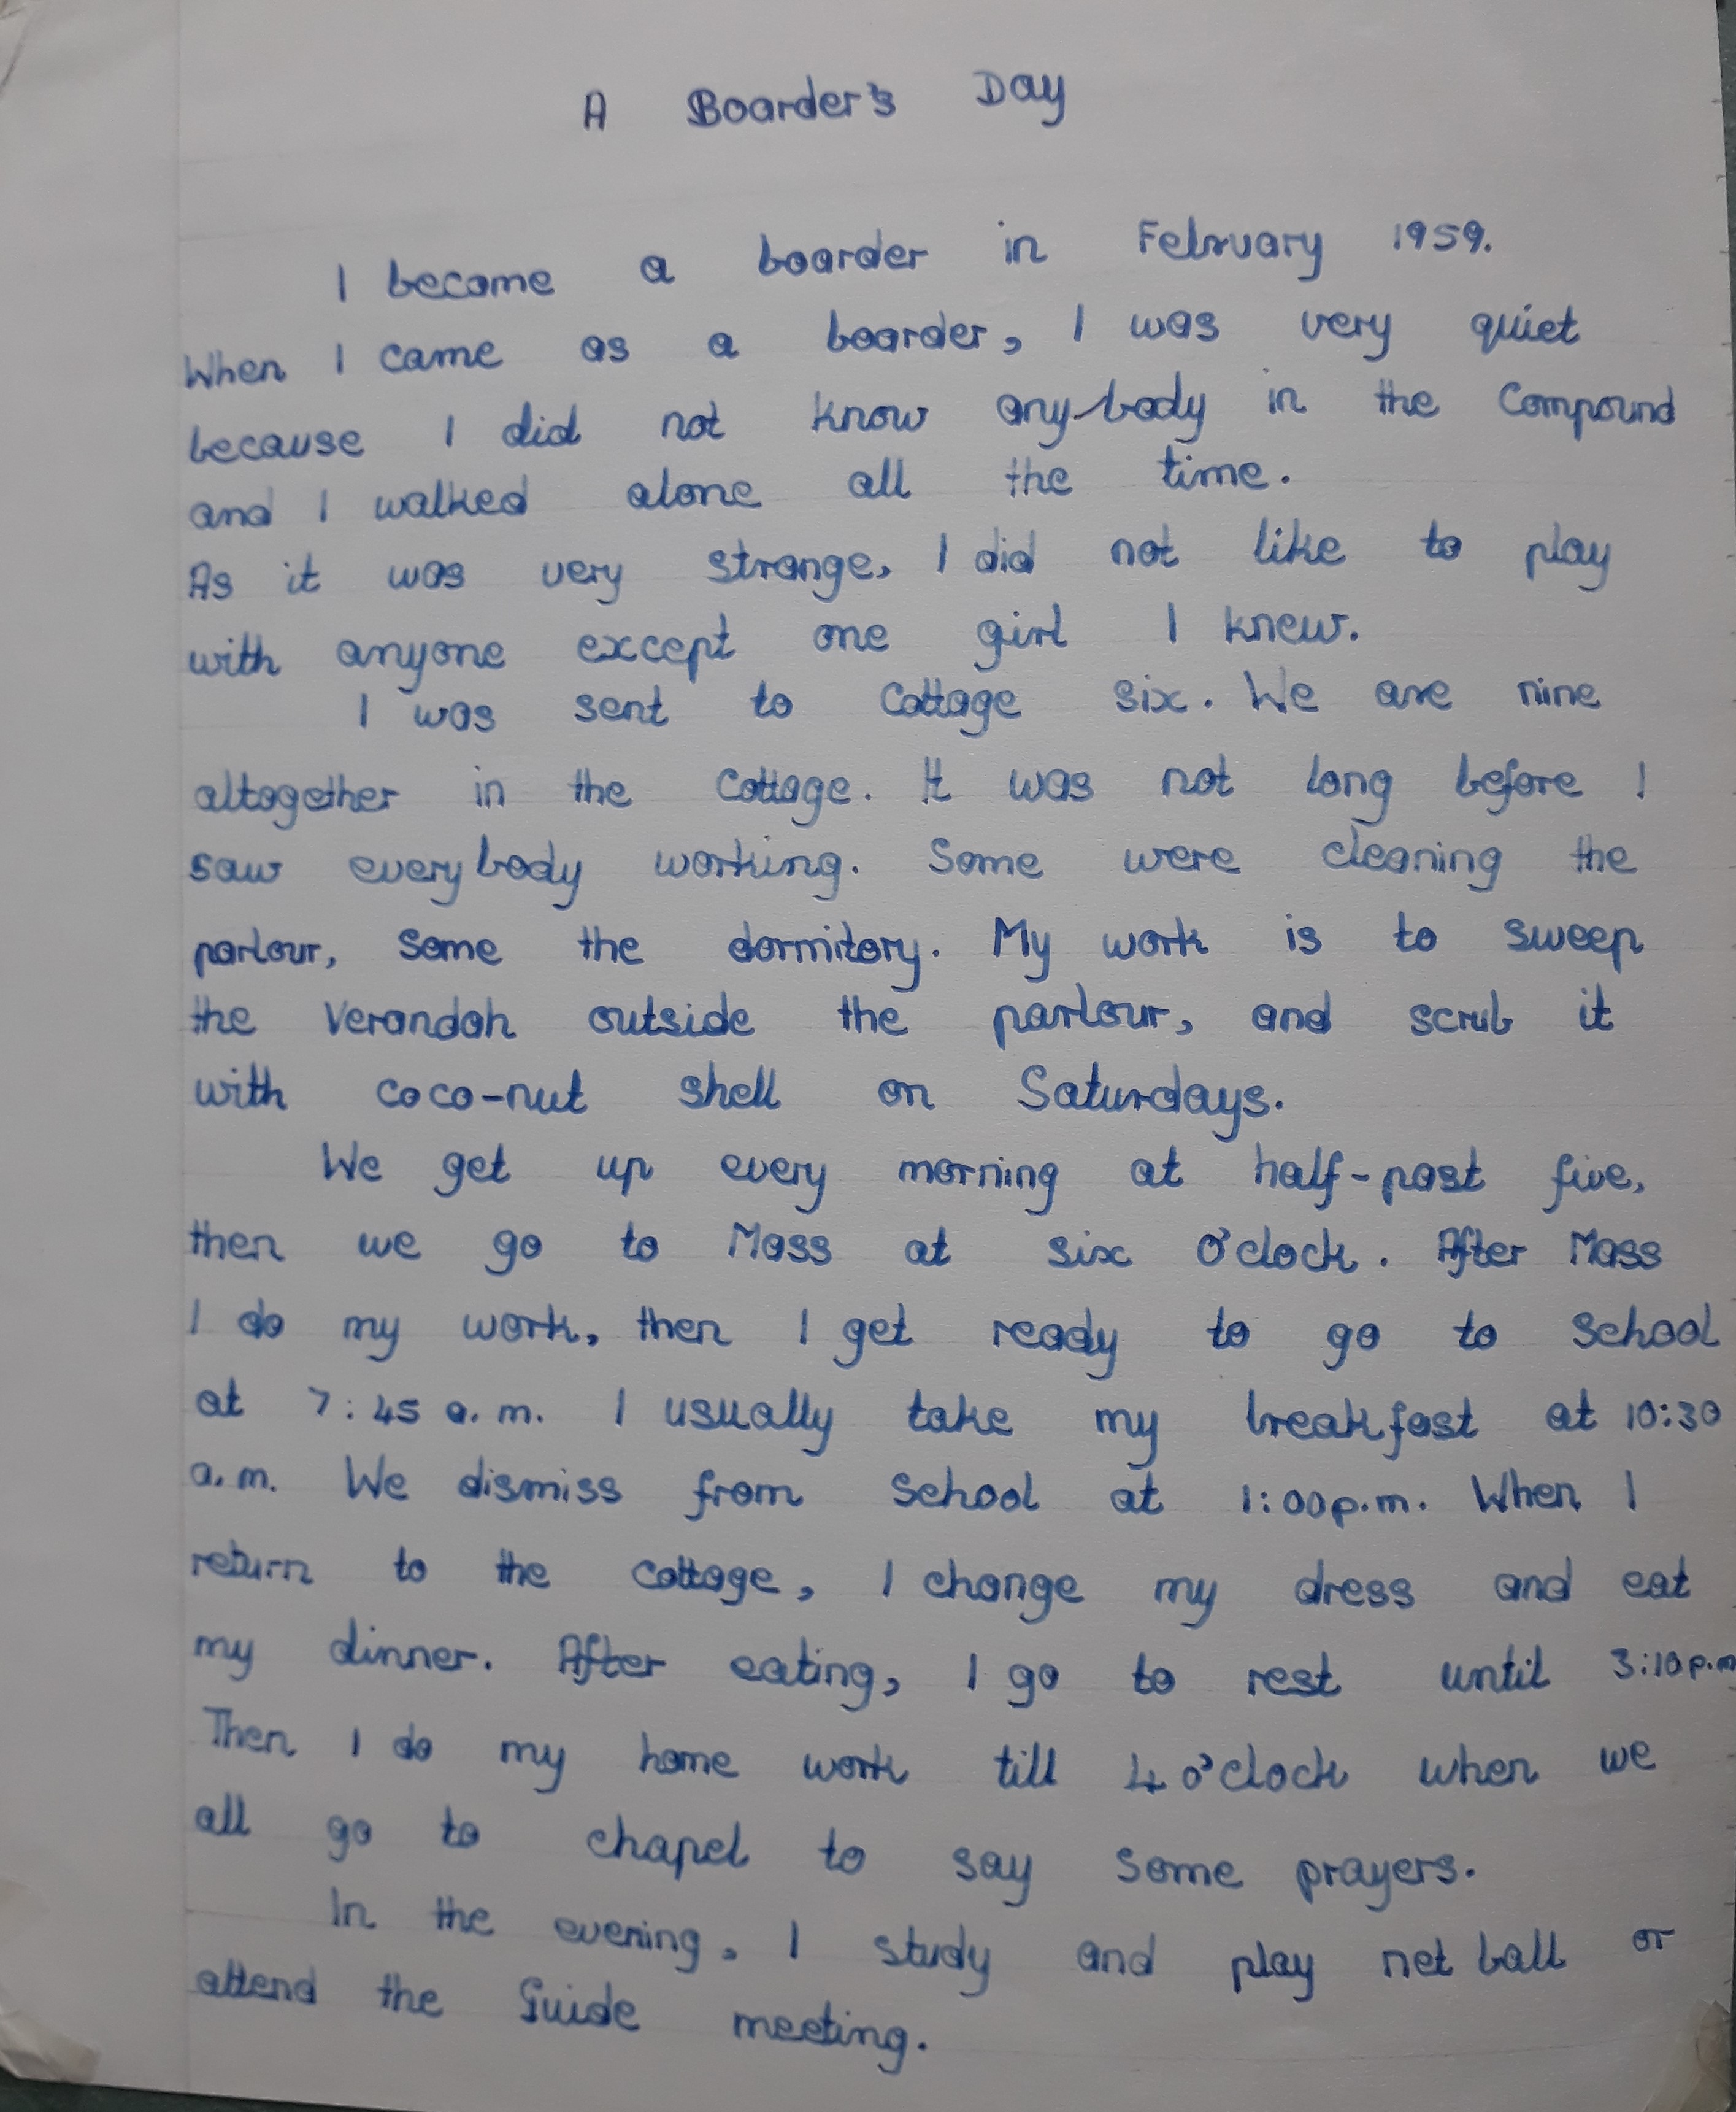 A Boarder's Day
I became a boarder in February 1959.
When I came as a boarder, I was very quiet
because I did not know any-body in the Compound
and I walked alone all the time.
As it was very strange, I did not like to play
with anyone except one girl I knew.
I was sent to Cottage six. We are nine
altogether in the Cottage. It was not long before I
saw everybody working. Some were cleaning the
parlour, some the dormitory. My work is to sweep
the Verandah outside the parlour, and scrub it
with coco-nut shell on Saturdays.
We get up every morning at half-past five,
then we go to Mass at six O'clock. After Mass
I do my work, then I get ready to go to school
at 7:45 a.m. I usually take my breakfast at 10:30
a.m. We dismiss from school at 1:00p.m. When I
return to the cottage, I change my dress and eat
my dinner. After eating, I go to rest until 3:10p.m
Then I do my home work till 4 o'clock when we
all go to chapel to say some prayers.
In the evening, I study and play net ball or
attend the Guide meeting.